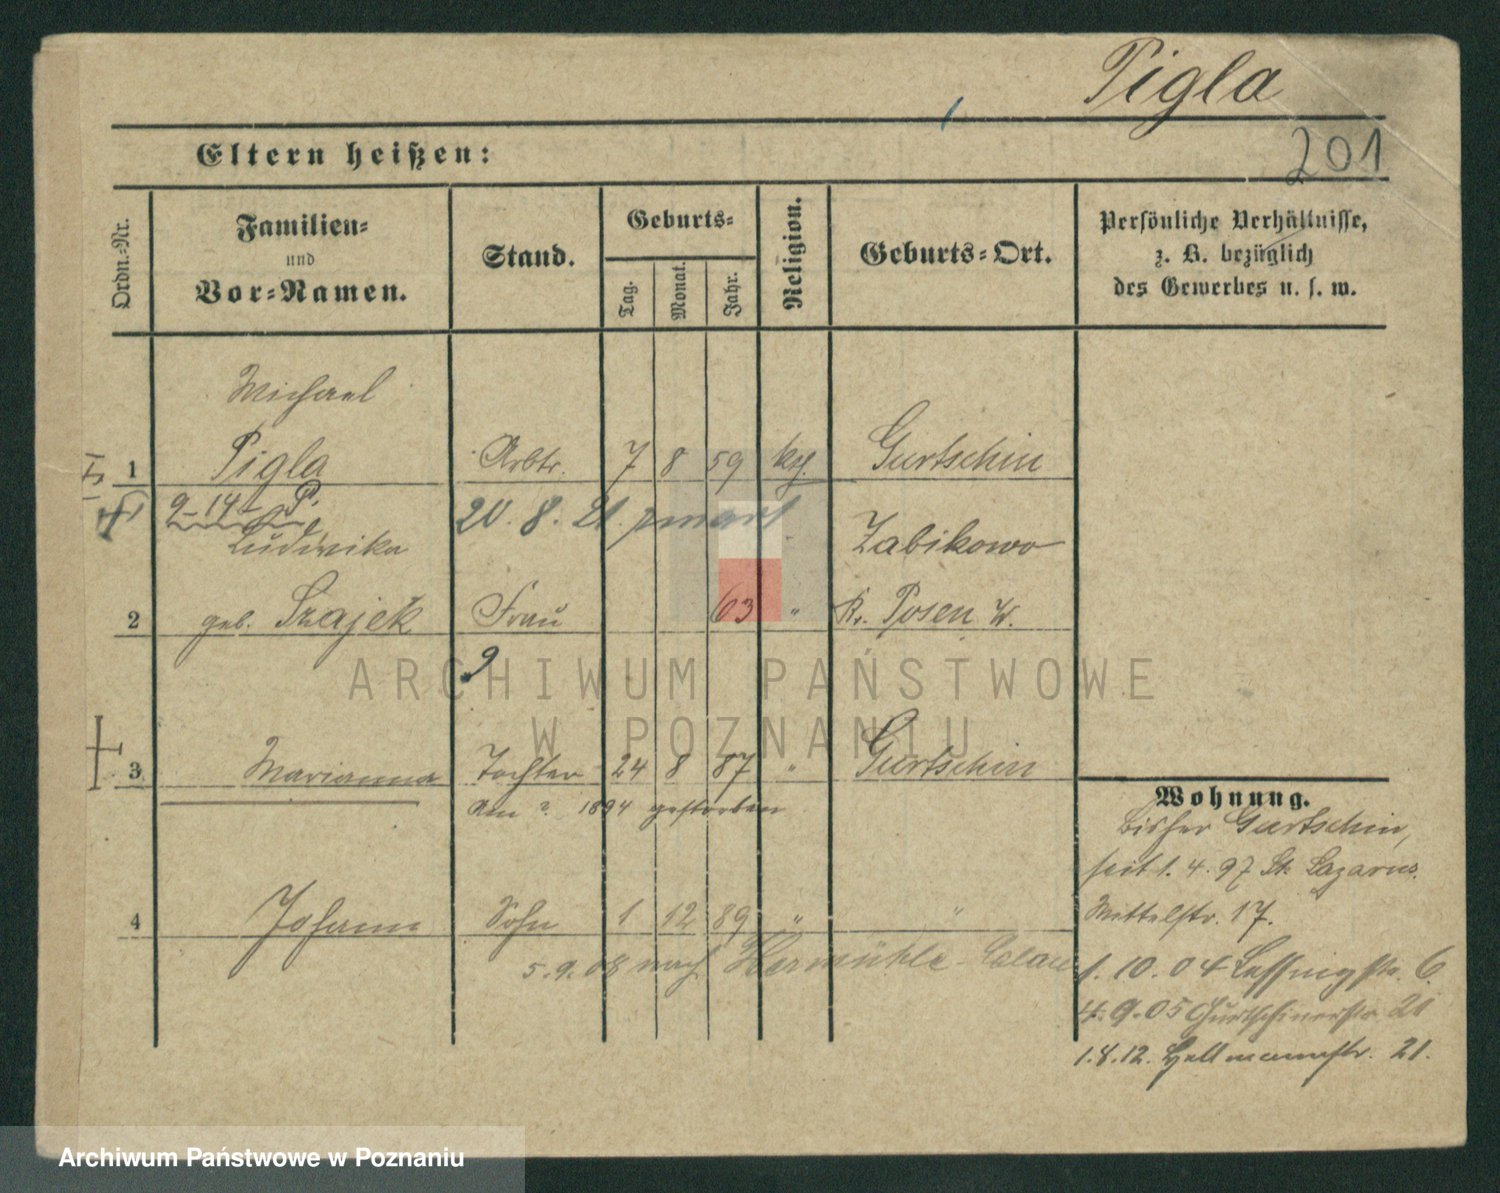 Pigla
201
Eltern heißen:
Ordn.-Nr.
Familien-
und
Vor-Namen.
Stand.
Geburts-
Tag.
Monat.
Jahr.
Religion.
Geburts-Ort.
Persönliche Verhältnisse,
z. B. bezüglich
des Gewerbes u. s. w.
Michael
1 Pigla Arbtr. 7 8 59 kg. Gurtschin
9-14- P. 20. 8. 21. zmarł
Ludwika Zabikowo
2 geb. Szajek Frau 63 " Kr. Posen W.
9
ARCHIWUM PAŃSTWOWE
W POZNANIU
3 Marianna Tochter 24 8 87 " Gurtschin
Am ? 1894 gestorben
Wohnung.
bisher Gurtschin,
seit 1. 4. 97 St. Lazarus.
4 Johann Sohn 1 12 89 " "
Mittelstr. 17.
5. 9. 08 nach
1. 10. 04 Lessingstr. 6
4. 9. 05 Gurtschinerstr. 21
1. 8. 12. Hellmannstr. 21.
Archiwum Państwowe w Poznaniu